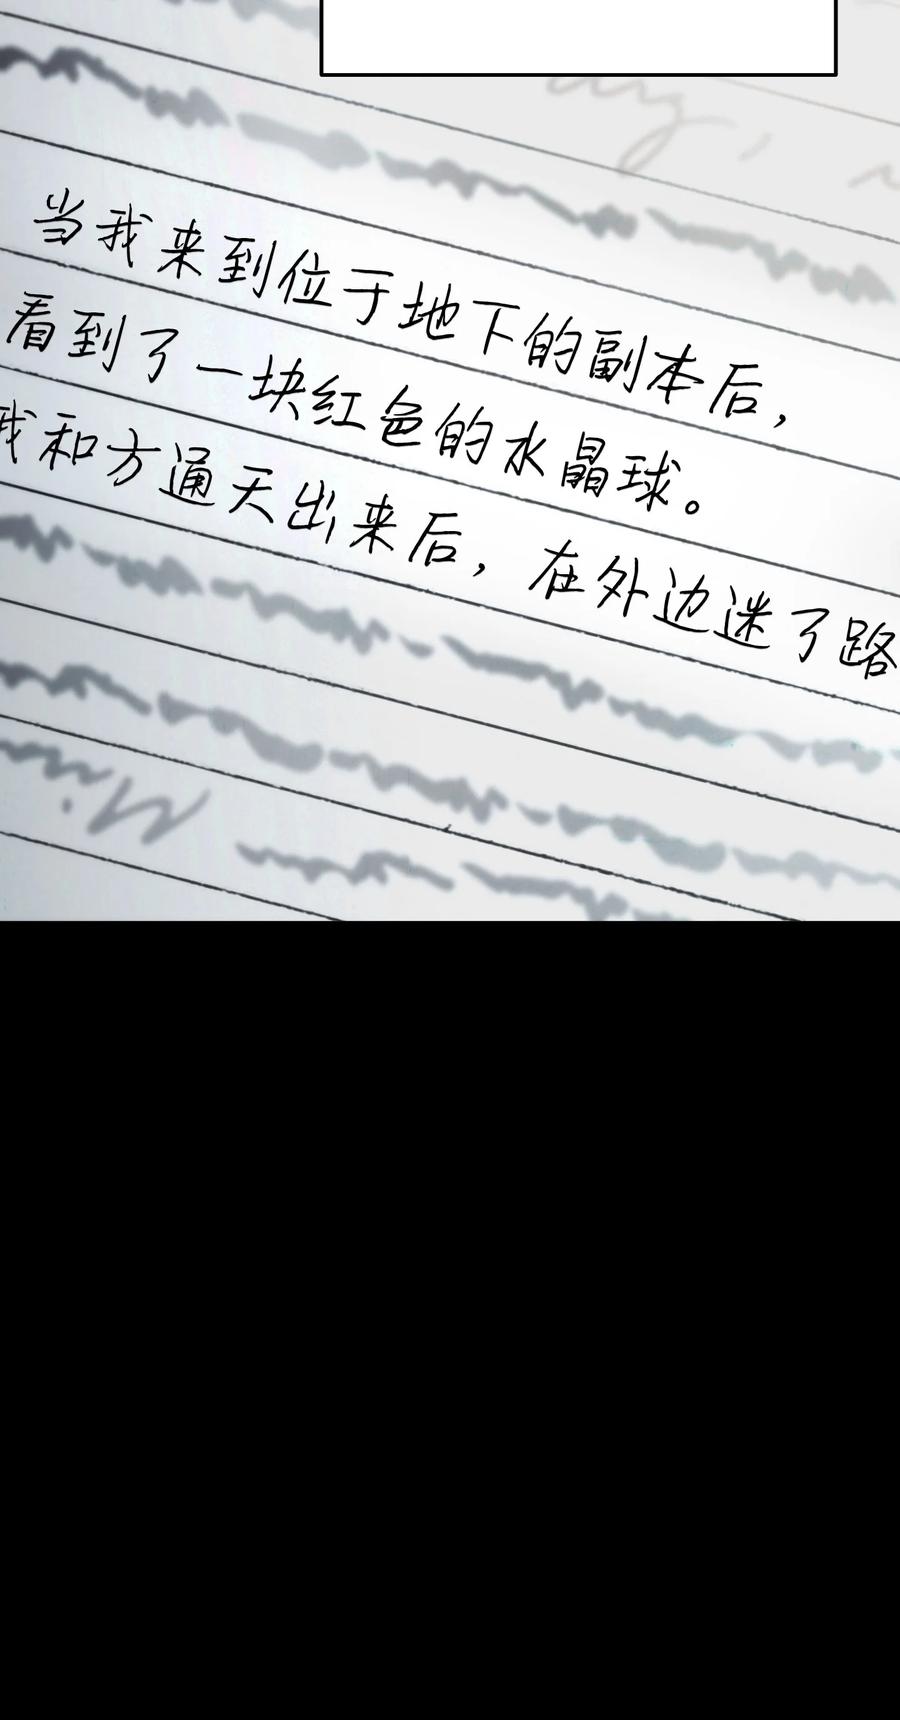 当我来到位于地下的副本后，
看到了一块红色的水晶球。
我和方通天出来后，在外边迷了路